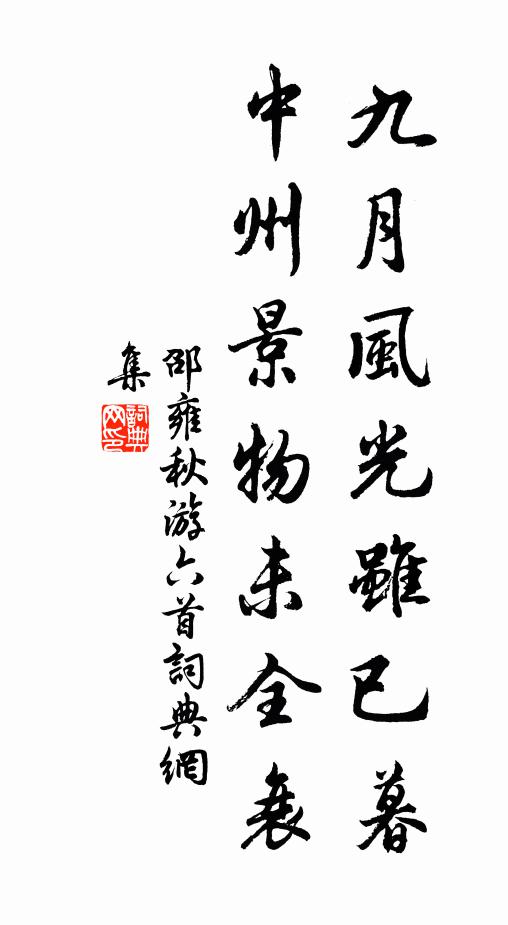 九月風光雖已暮
中州景物未全衰
邵雍秋游六首詞典網
集
詞典
网印